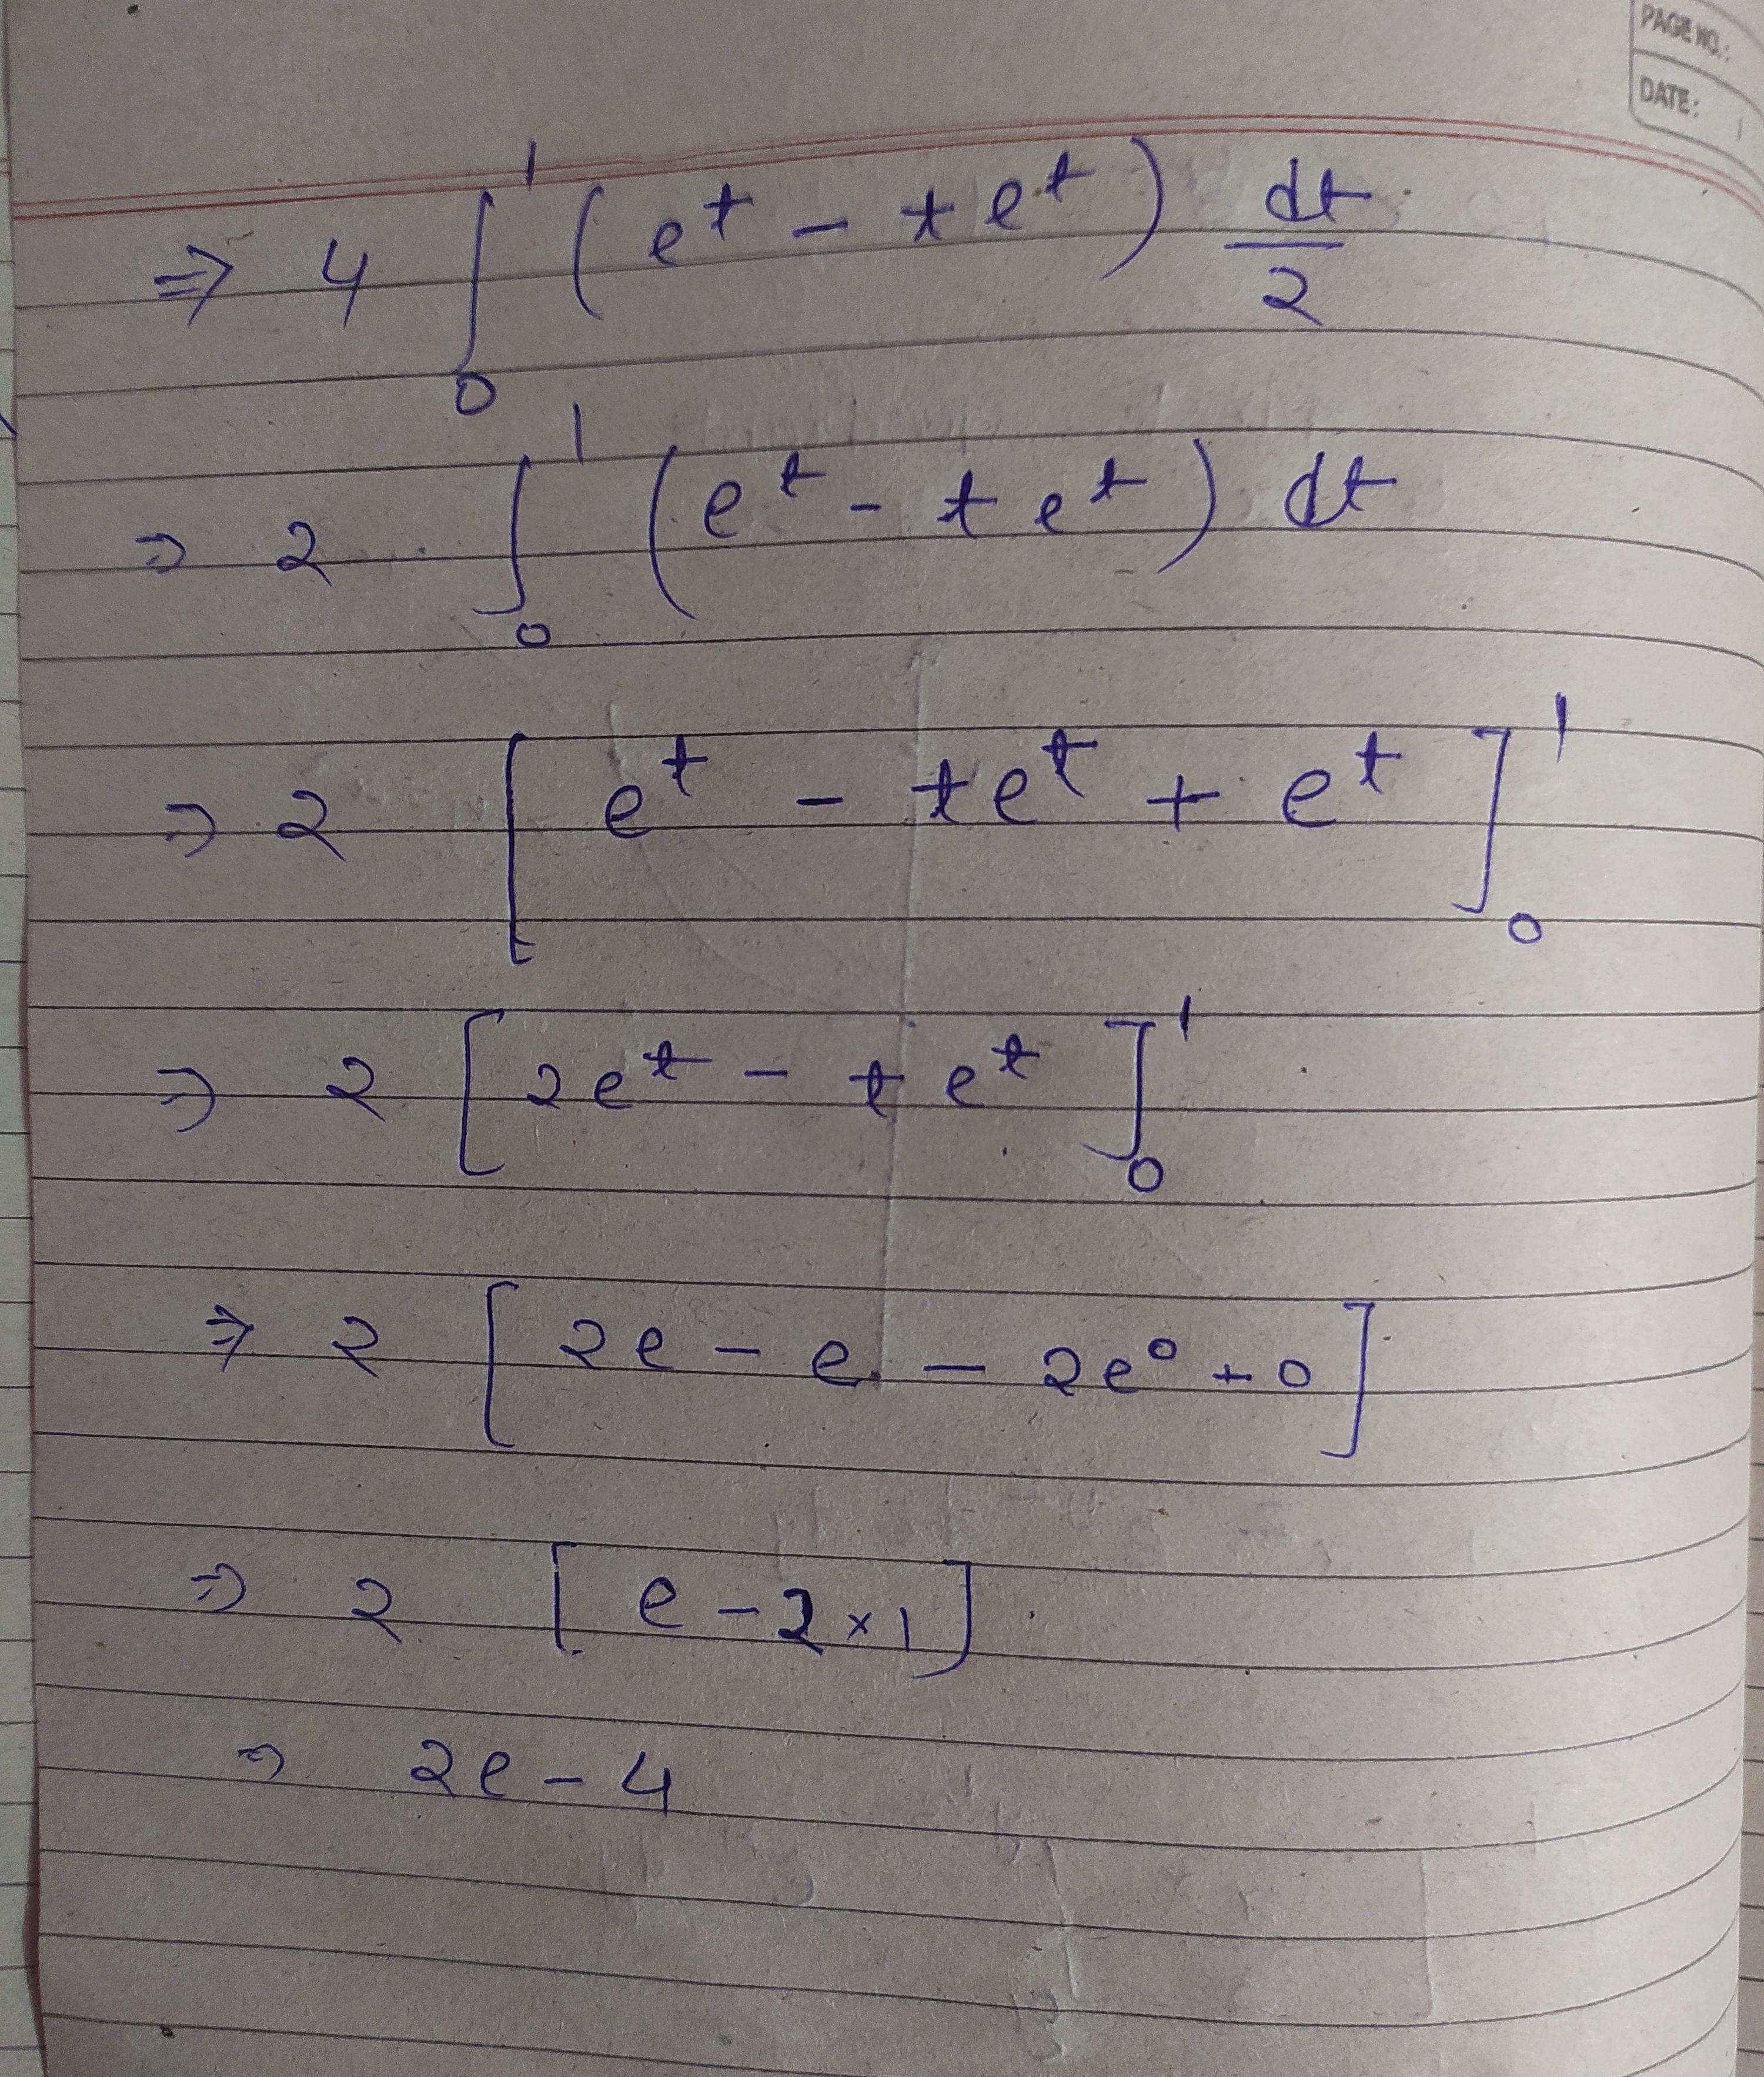 PAGE NO.:
DATE:
⇒ 4 ∫₀¹ (e^t - te^t) dt/2
⇒ 2 ∫₀¹ (e^t - te^t) dt
⇒ 2 [e^t - te^t + e^t]₀¹
⇒ 2 [2e^t - te^t]₀¹
⇒ 2 [2e - e - 2e⁰ + 0]
⇒ 2 [e - 2×1]
⇒ 2e - 4